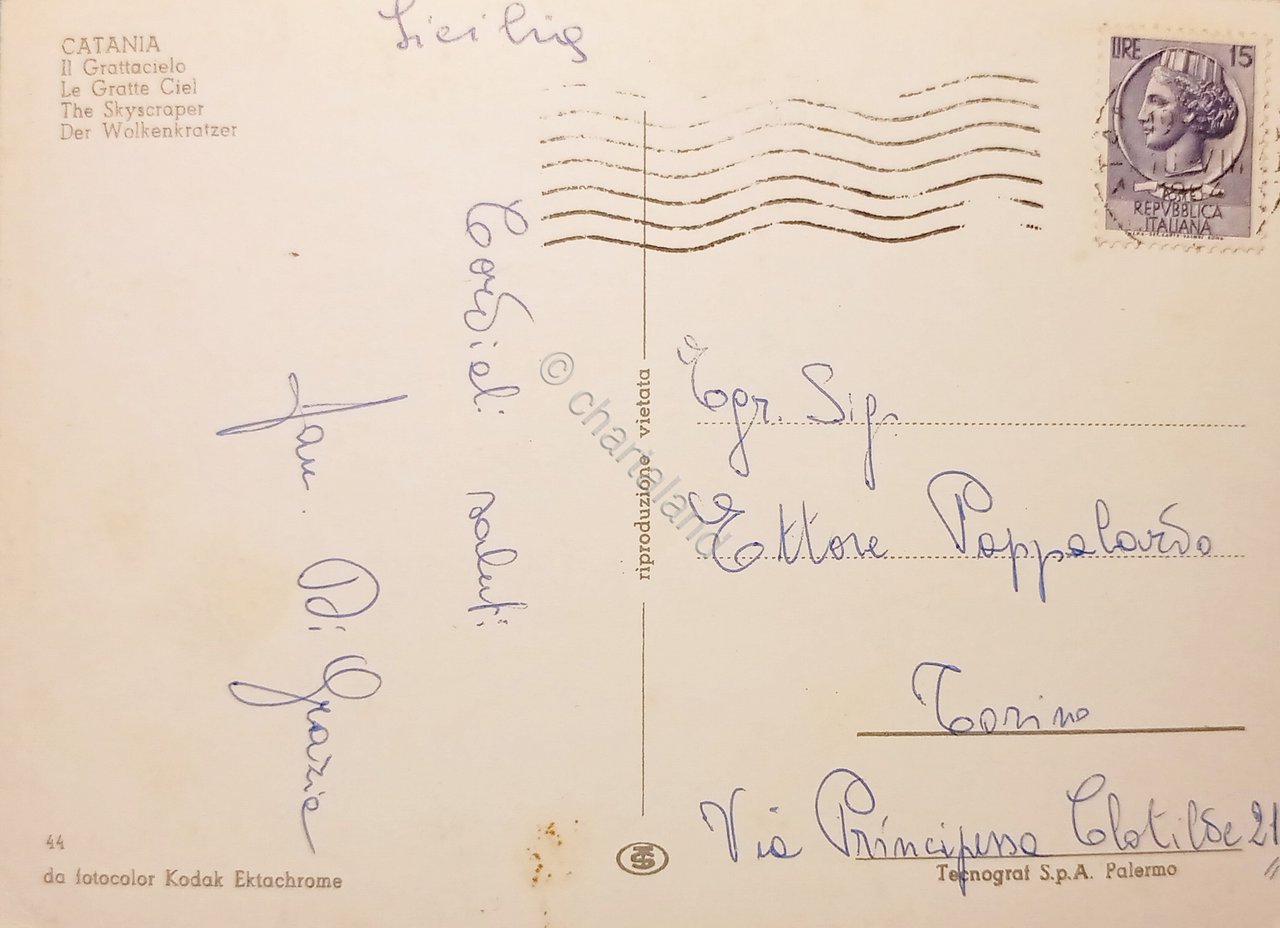 Sicilia
CATANIA
Il Grattacielo
Le Gratte Ciel
The Skyscraper
Der Wolkenkratzer
LIRE 15
REPVBBLICA
ITALIANA
Cordiali saluti
Fam. Di Grazia
riproduzione vietata
© charteland
Egr. Sig.
Ettore Pappalardo
Torino
Via Principessa Clotilde 21
44
da fotocolor Kodak Ektachrome
Tecnograf S.p.A. Palermo